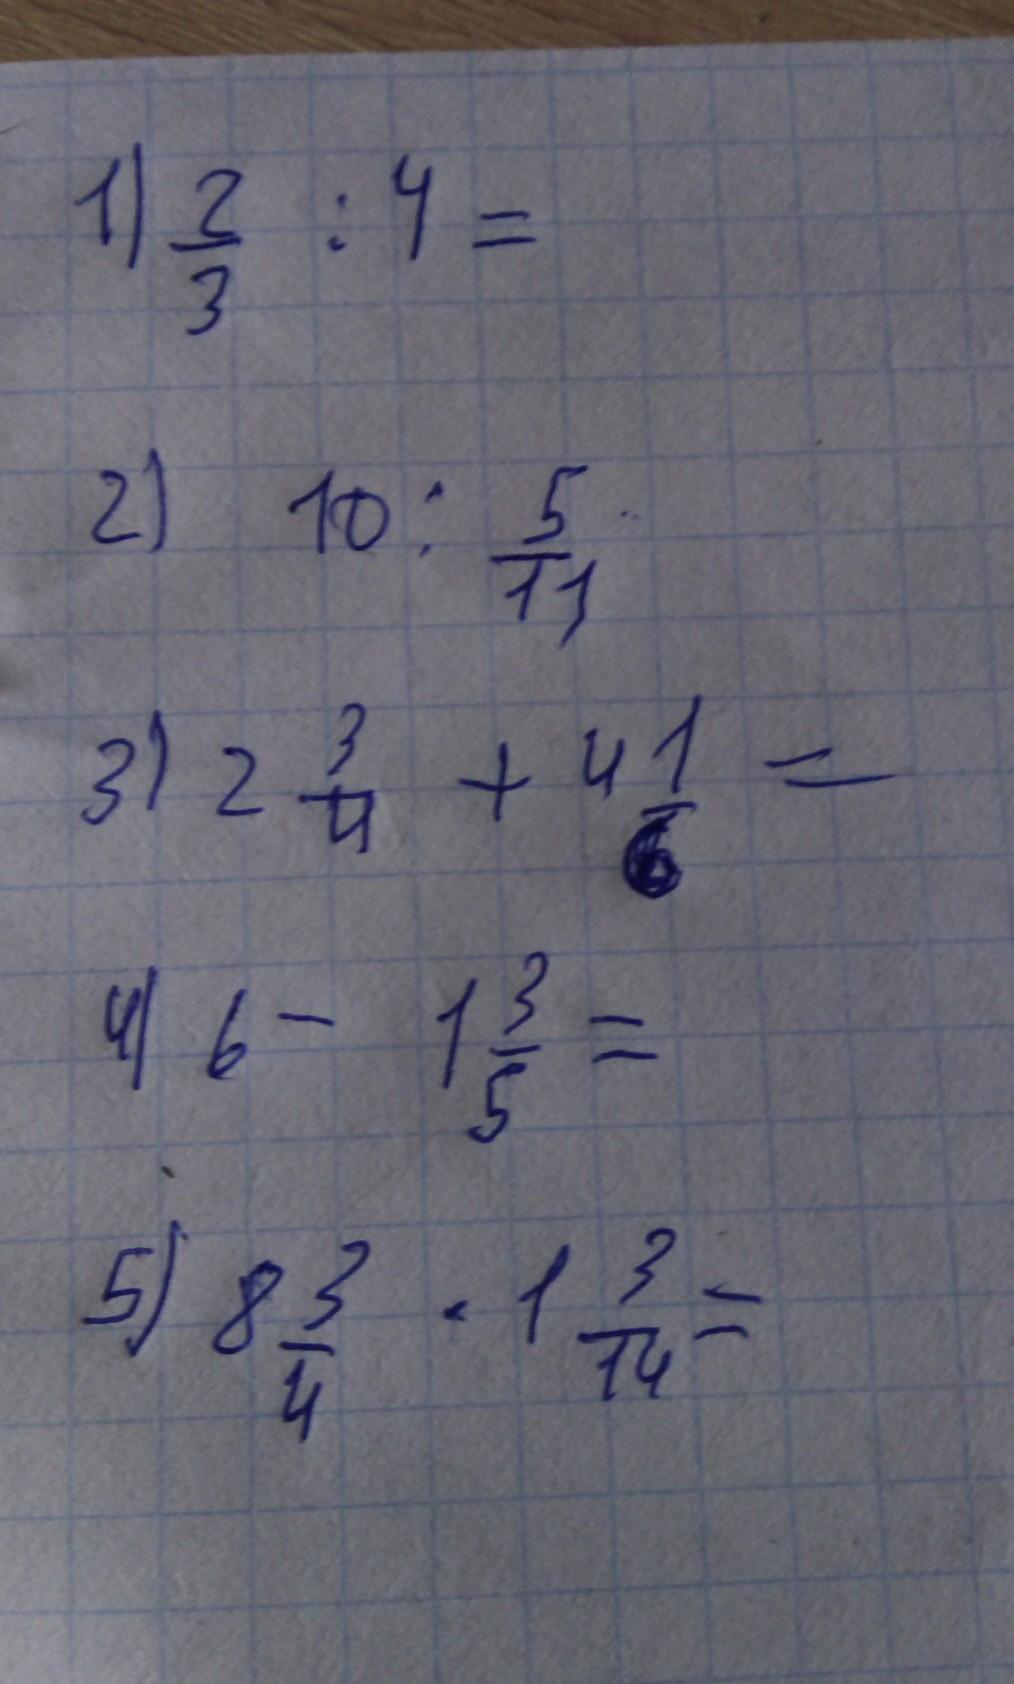 1) 2/3 : 4 =
2) 10 : 5/11
3) 2 3/4 + 4 1/6 =
4) 6 - 1 3/5 =
5) 8 3/4 · 1 3/14 =